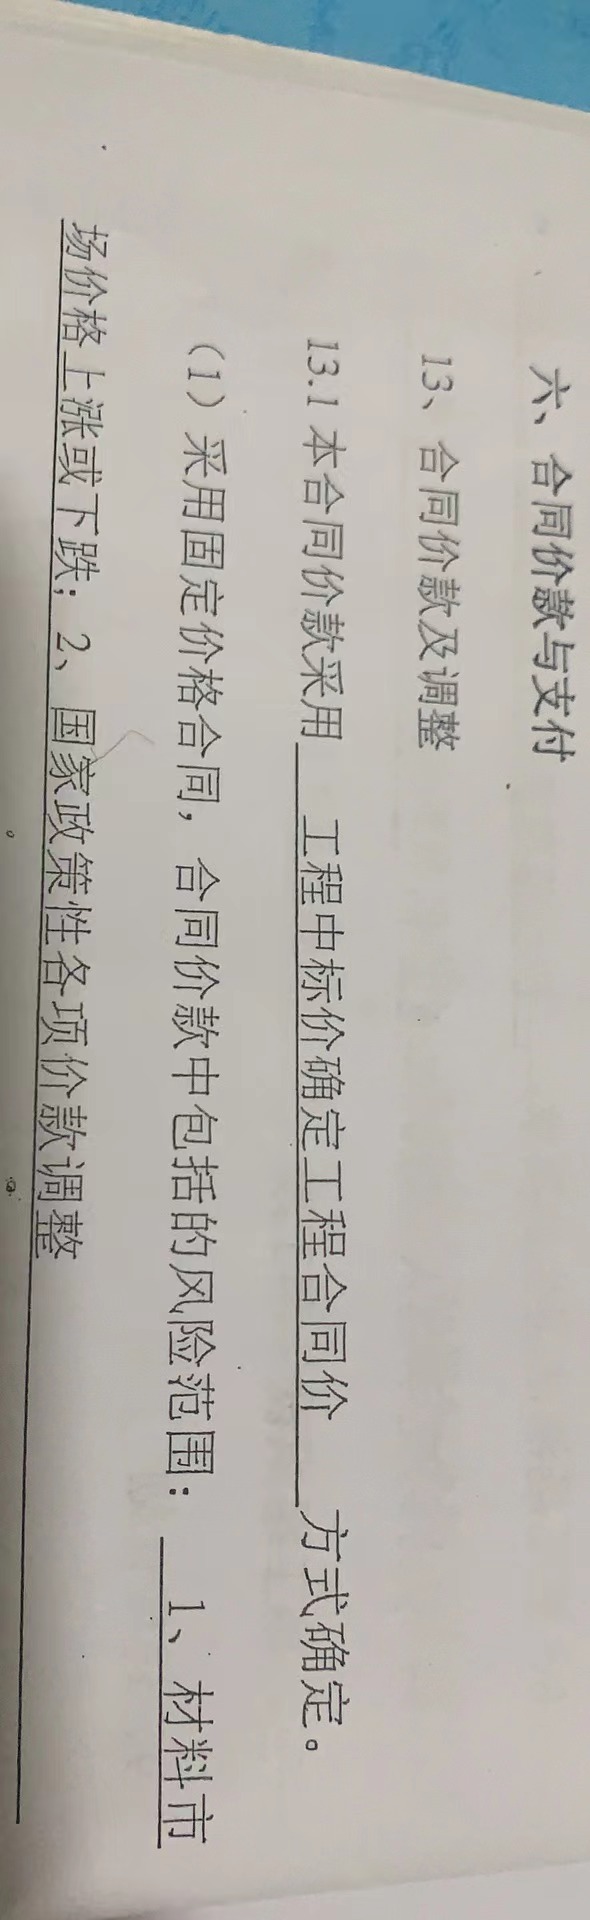 六、合同价款与支付
13、合同价款及调整
13.1 本合同价款采用 工程中标价确定工程合同价 方式确定。
（1）采用固定价格合同，合同价款中包括的风险范围： 1、材料市
场价格上涨或下跌；2、国家政策性各项价款调整